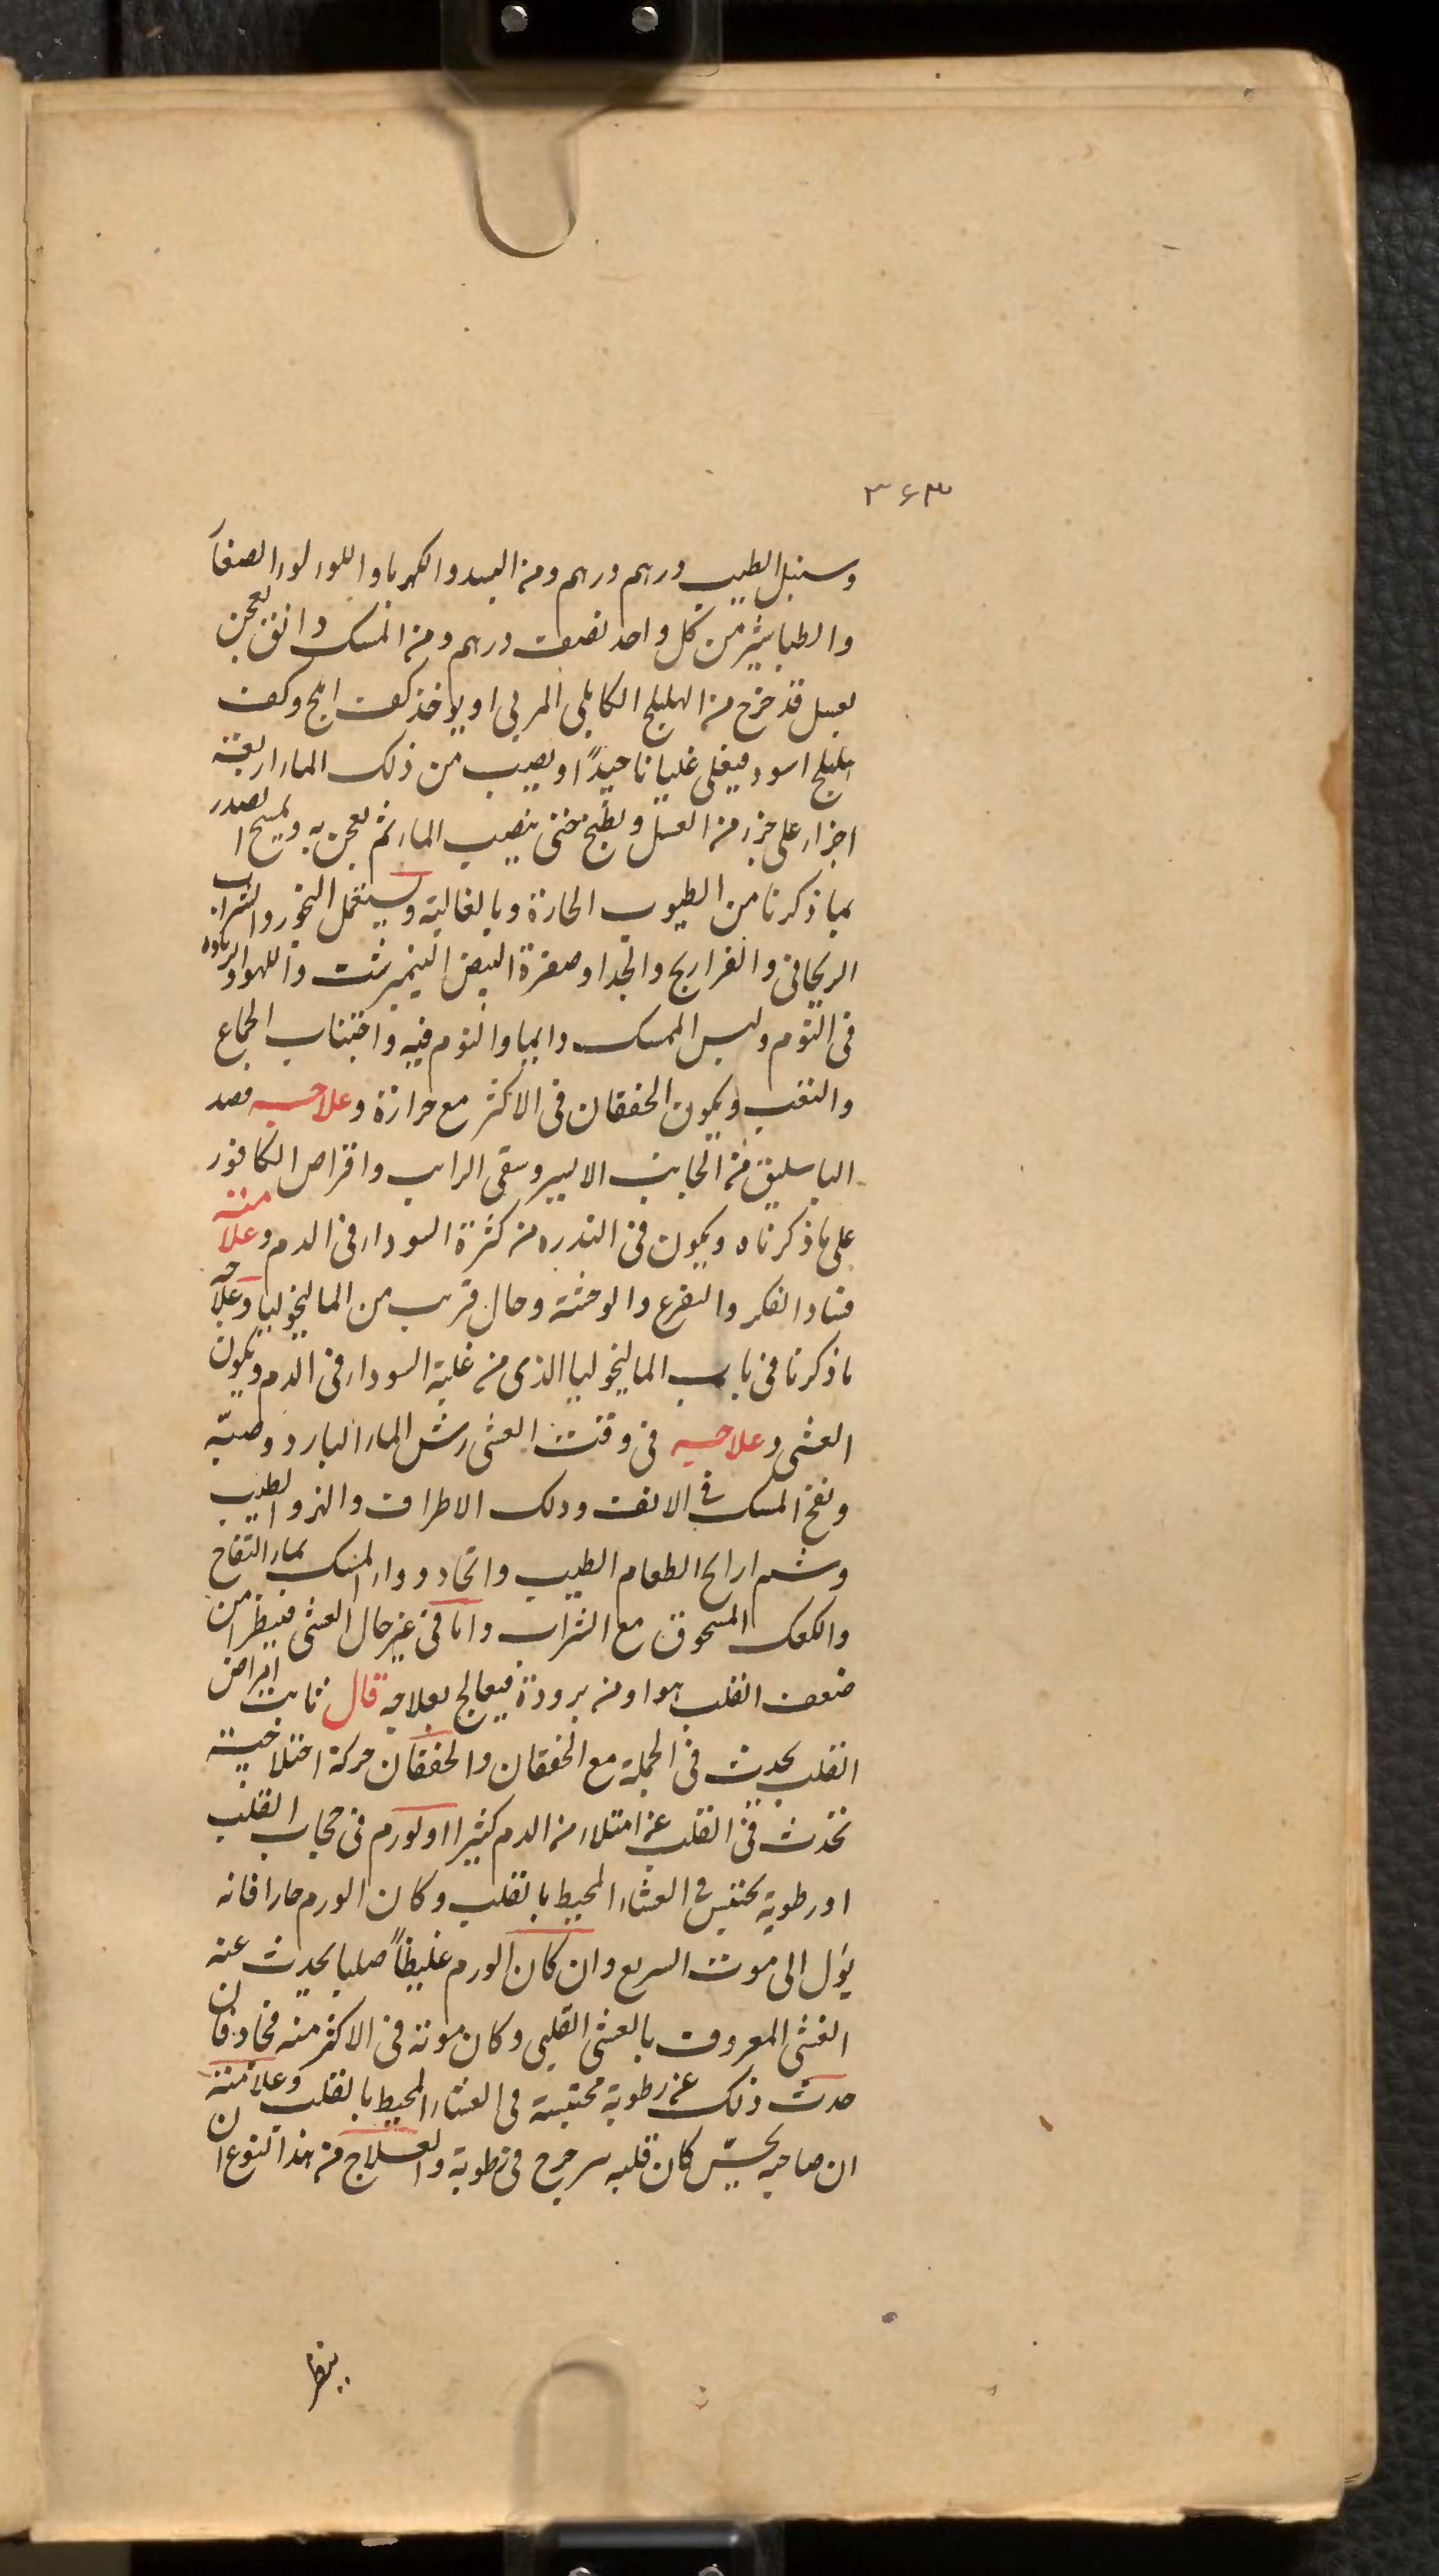 ۳۶۳
وسنبل الطيب درهم درهم ومن البسد والكهربا واللولو الصفا
والطباشير من كل واحد نصف درهم ومن المسك دانق يعجن
بعسل قد خرج من الهليلج الكابلى المربى او يوخذ كف املج وكف
اهليلج اسود فيغلى غليانا جيداً ويصب من ذلك الماء اربعة
اجزاء على جزء من العسل ويطبخ حتى ينصب الماء ثم يعجن به ويمسح الصدر
بما ذكرنا من الطيوب الحارة وبالغالية ويستعمل البخور والشراب
الريحانى والفراريج والجدا وصفرة البيض النيمبرشت واللهو والزيادة
فى النوم ولبس الممسك دايما والنوم فيه واجتناب الجماع
والتعب ويكون الخفقان فى الاكثر مع حرارة وعلاجه فصد
الباسليق من الجانب الايسر وسقى الرايب واقراص الكافور
على ما ذكرناه ويكون فى الندره من كثرة السوداء فى الدم وعلامته
فساد الفكر والتفزع والوحشة وحال قريب من الماليخوليا وعلاجه
ما ذكرنا فى باب الماليخوليا الذى من غلبة السوداء فى الدم ويكون
الغشى وعلاجه فى وقت الغشى رش الماء البارد وصبّه
ونفخ المسك فى الانف ودلك الاطراف والهز والطيب
وشم ارايح الطعام الطيب واتخاد دواء المسك بماء التفاح
والكعك المسحوق مع الشراب واما فى غير حال الغشى فينظر امن
ضعف القلب هو او من برودة فيعالج بعلاجه قال ثابت امراض
القلب يحدث فى الجملة مع الخفقان والخفقان حركة اختلاجية
تحدث فى القلب عن امتلاء من الدم كثيرا او لورم فى حجاب القلب
او رطوبة تحتبس فى الغشاء المحيط بالقلب وكان الورم حارا فانه
يؤل الى موت السريع وان كان الورم غليظاً صلبا يحدث عنه
الغشى المعروف بالغشى القلبى وكان موته فى الاكثر منه فجاة فان
حدث ذلك عن رطوبة محتبسة فى الغشاء المحيط بالقلب وعلامته
ان صاحبه يحسّ كان قلبه يترجرج فى رطوبة والعلاج من هذا النوع ان
ينظر